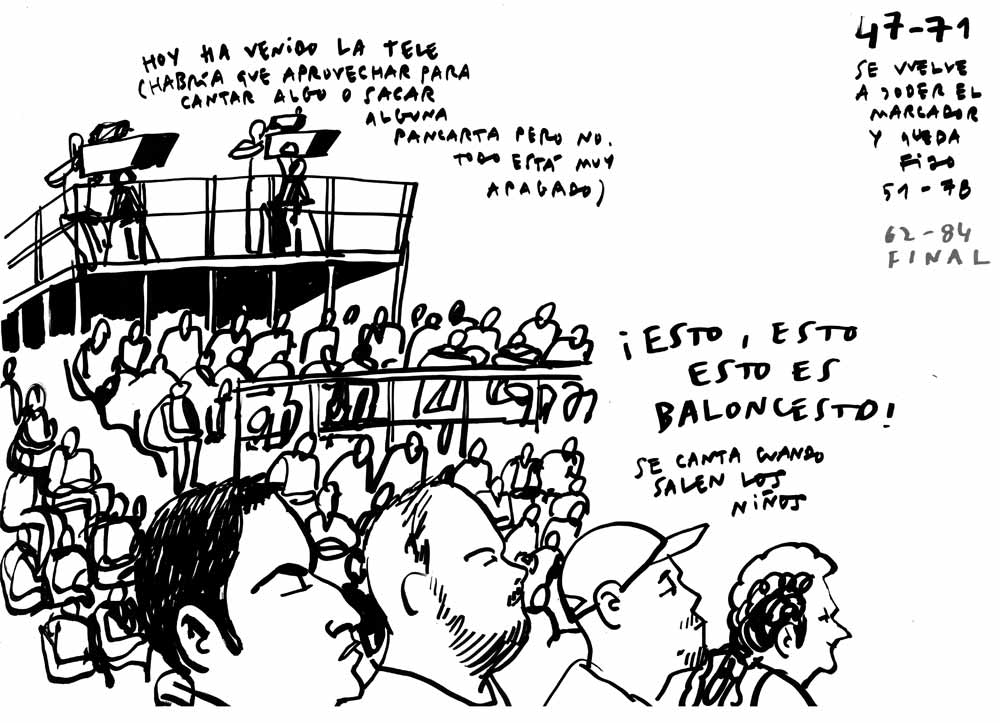 HOY HA VENIDO LA TELE
(HABRÍA QUE APROVECHAR PARA
CANTAR ALGO O SACAR
ALGUNA
PANCARTA PERO NO.
TODO ESTÁ MUY
APAGADO)
47-71
SE VUELVE
A JODER EL
MARCADOR
Y QUEDA
FIJO
51-78
62-84
FINAL
¡ESTO, ESTO
ESTO ES
BALONCESTO!
SE CANTA CUANDO
SALEN LOS
NIÑOS